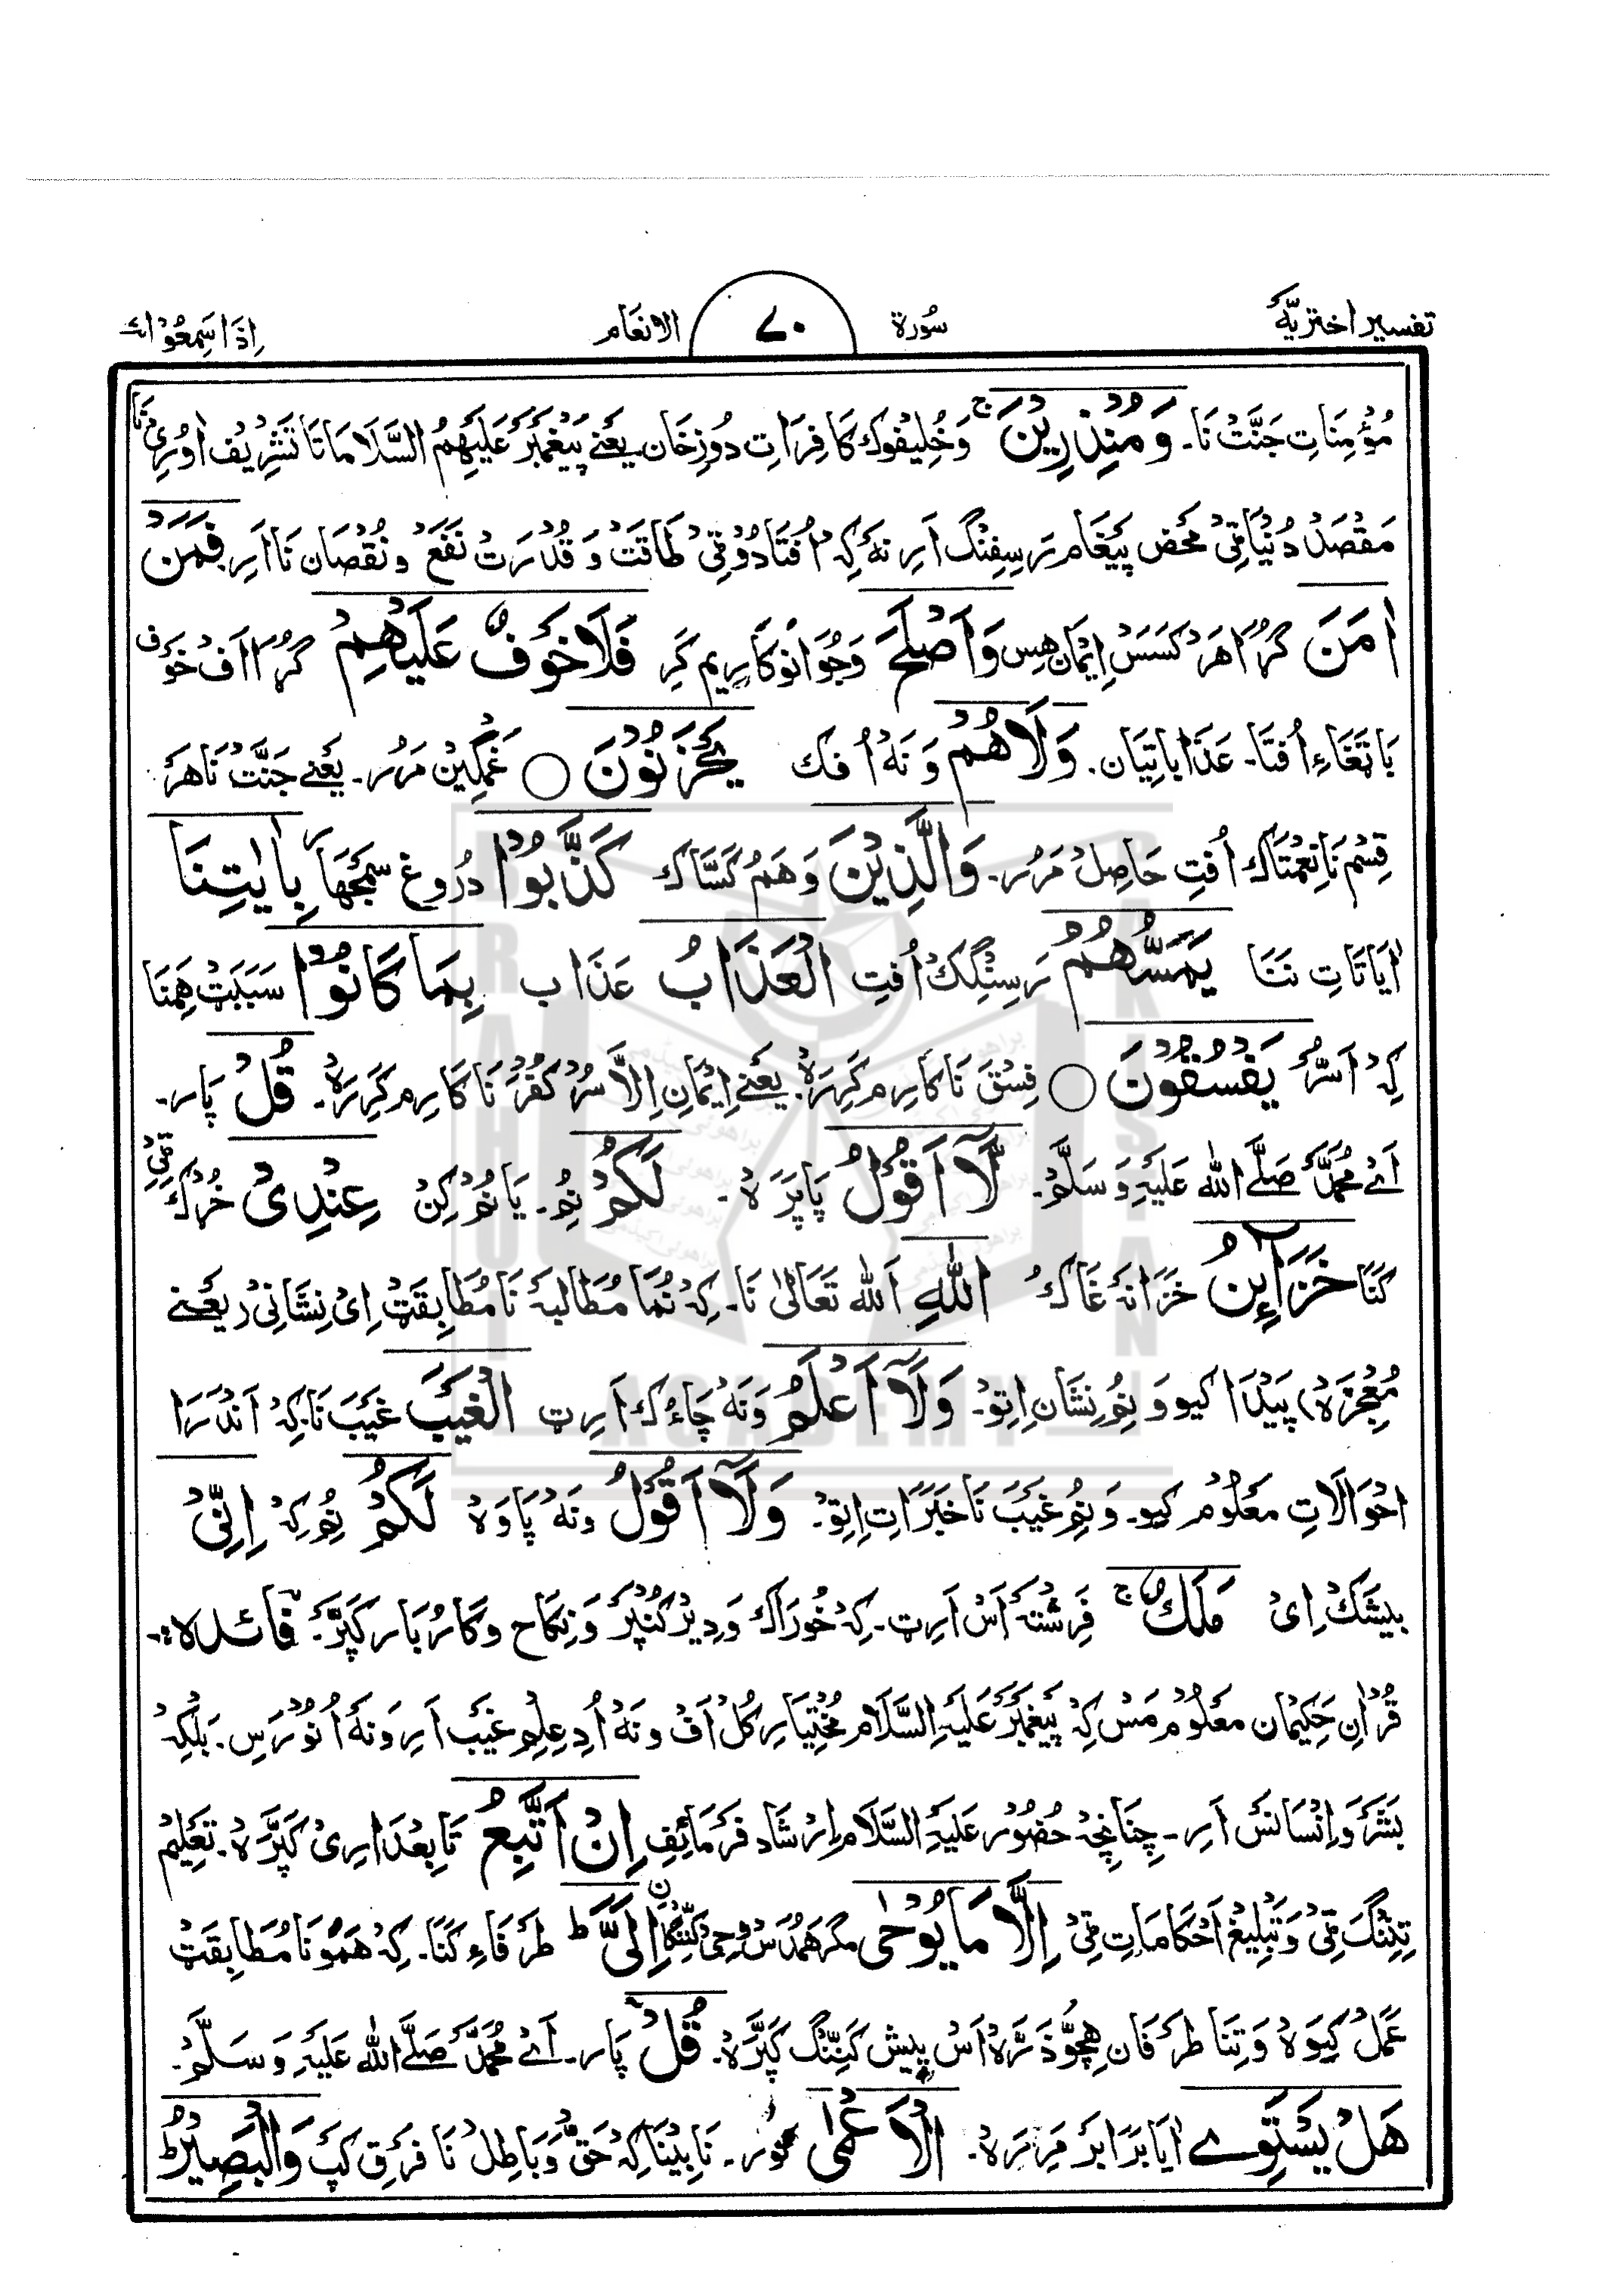 تفسیر اختریّہ سُورة ٧٠ الانعام اِذَاسَمِعُوْا
مُؤمِنَاتِ جَنَّتْ نَا۔ وَمُنْذِرِيْنَ ج وَخُلِيفوک کَافِرَاتِ دُوزِخَان۔ یَعْنے پَیْغَمْبَرْ عَلَيْهِمُ السَّلَامَاتَا تَشْرِيْف اُورِیْ نَا
مَقْصَدْ دُنْیَاٹِیْ مَحْض پَیْغَام رَسِفِنْگ اَرِ نَہ کِہْ اُفْتَا دُوْٹِیْ طَاقَتْ وَ قُدْرَتْ نَفَعْ وَ نُقْصَان نَا اَرِ فَمَنْ
اٰمَنَ گُڑَا ھَرْکَسَسْ اِیْمَان ھِس وَاَصْلَحَ وَجُوَانُو کَارِیم کَرِ فَلَاخَوْفٌ عَلَيْهِمْ گُڑَا اَفْ خَوْف
بَاتَغَاءِ اُفْتَا۔ عَذَابَاتِیَان۔ وَلَاهُمْ وَ نَہْ اُفک يَحْزَنُوْنَ ○ غَمْگِیْن مَرُر۔ یَعْنے جَنَّتْ نَا ھَرْ
قِسْم نَا نِعْمَتَاک اُفتِ حَاصِلْ مَرُر۔ وَالَّذِيْنَ وَھَمْ کَسَّاک كَذَّبُوْا دُرُوغ سَمْجَھَار بِاٰيٰتِنَا
اٰیَاتَاتِ نَنَا يَمَسُّهُمُ رَسِنْگِکْ اُفتِ الْعَذَابُ عَذَاب بِمَا كَانُوْا سَبَبَتْ ھَمْنَا
کِہْ اَسُّرْ يَفْسُقُوْنَ ○ فِسْقَ نَا کَارِم کَرِرَہْ۔ یَعْنے اِیْمَانِ اِلَّا سُرْ کُفْرَ نَا کَارِم کَرِرَہْ۔ قُلْ پَار۔
اَے مُحَمَّدْ صَلَّے اللّٰہ عَلَيْہِ وَ سَلَّمْ۔ لَّآ اَقُوْلُ پَاپَرَہْ۔ لَكُمْ نُم۔ یَا نُمْ کِن عِنْدِىْ خُڑْکْ ٹِیْ
کَنَا خَزَآئِنُ خَزَانَہ غَاک اللّٰهِ اَللّٰہ تَعَالیٰ نَا۔ کِہْ نُمَا مُطَالبَہْ نَا مُطَابِقَتْ اِیْ نِشَانِیْ (یَعْنے
مُعْجِزَہْ) پَیْدَا کیو وَ نُمِ نِشَان اِتِوْ۔ وَلَآ اَعْلَمُ وَنَہْ چَاءُک اَرِت الْغَيْبَ غَیْبَ نَا۔ کِہْ اَنْدَرَا
احْوَالَاتِ مَعْلُوْم کیو۔ وَ نُمِ غَیْبْ نَا خَبَرَاتِ اِتِوْ۔ وَلَآ اَقُوْلُ وَنَہْ پَاوَہْ لَكُمْ نُم کِہْ اِنِّىْ
بیشَکْ اِیْ مَلَكٌ ج فَرِشْتَہْ اَسْ اَرِت۔ کِہْ خُورَاک وَ دِیْر کُنْپَرْ وَ نِکَاح وَ کَارُبَار کَپَرَّ۔ فَائدہ:۔
قُرْاٰنِ حَکِیْمَان مَعْلُوْم مَسْ کِہْ پَیْغَمْبَرْ عَلَیْہِ السَّلَام مُخْتِیَارِ کُلْ اَفْ وَ نَہْ اُدِ عِلْمِ غَیْبْ اَرِ وَ نَہْ اُ نُوْرَسِ۔ بَلْکِہْ
بَشَرْ وَ اِنْسَانَسْ اَرِ۔ چِنَانچِہْ حُضُوْر عَلَیْہِ السَّلَام اِرْشَاد فَرْمَائِفِ اِنْ اَتَّبِعُ تَابِعْدَارِیْ کَپَرَّہْ۔ تَعْلِیْم
تِنِنْگَ ٹِیْ وَ تَبْلِیْغِ اَحْکَامَاتِ ٹِیْ اِلَّا مَا يُوْحٰٓى مَگر ھَمْدَسْ وَحِیْ کَنِنْگَا اِلَىَّ ط طَرْفَاءِ کَنَا۔ کِہْ ھَمُوْنَا مُطَابِقَتْ
عَمَلْ کِیْوَہْ وَ تِنَا طَرْفَان ھِچّو ذَرَّہْ اَسْ پِیْش کَنِنْگ کَپَرَّہْ۔ قُلْ پَار۔ اَے مُحَمَّدْ صَلَّے اللّٰہ عَلَیْہِ وَ سَلَّمْ۔
هَلْ يَسْتَوِے اٰیَا بَرَابَرْ مَرِرَہْ۔ الْاَعْمٰى کور۔ نَابِیْنَا کِہْ حَقّ وَ بَاطِلْ نَا فَرْق کَپ وَالْبَصِيْرُ ط